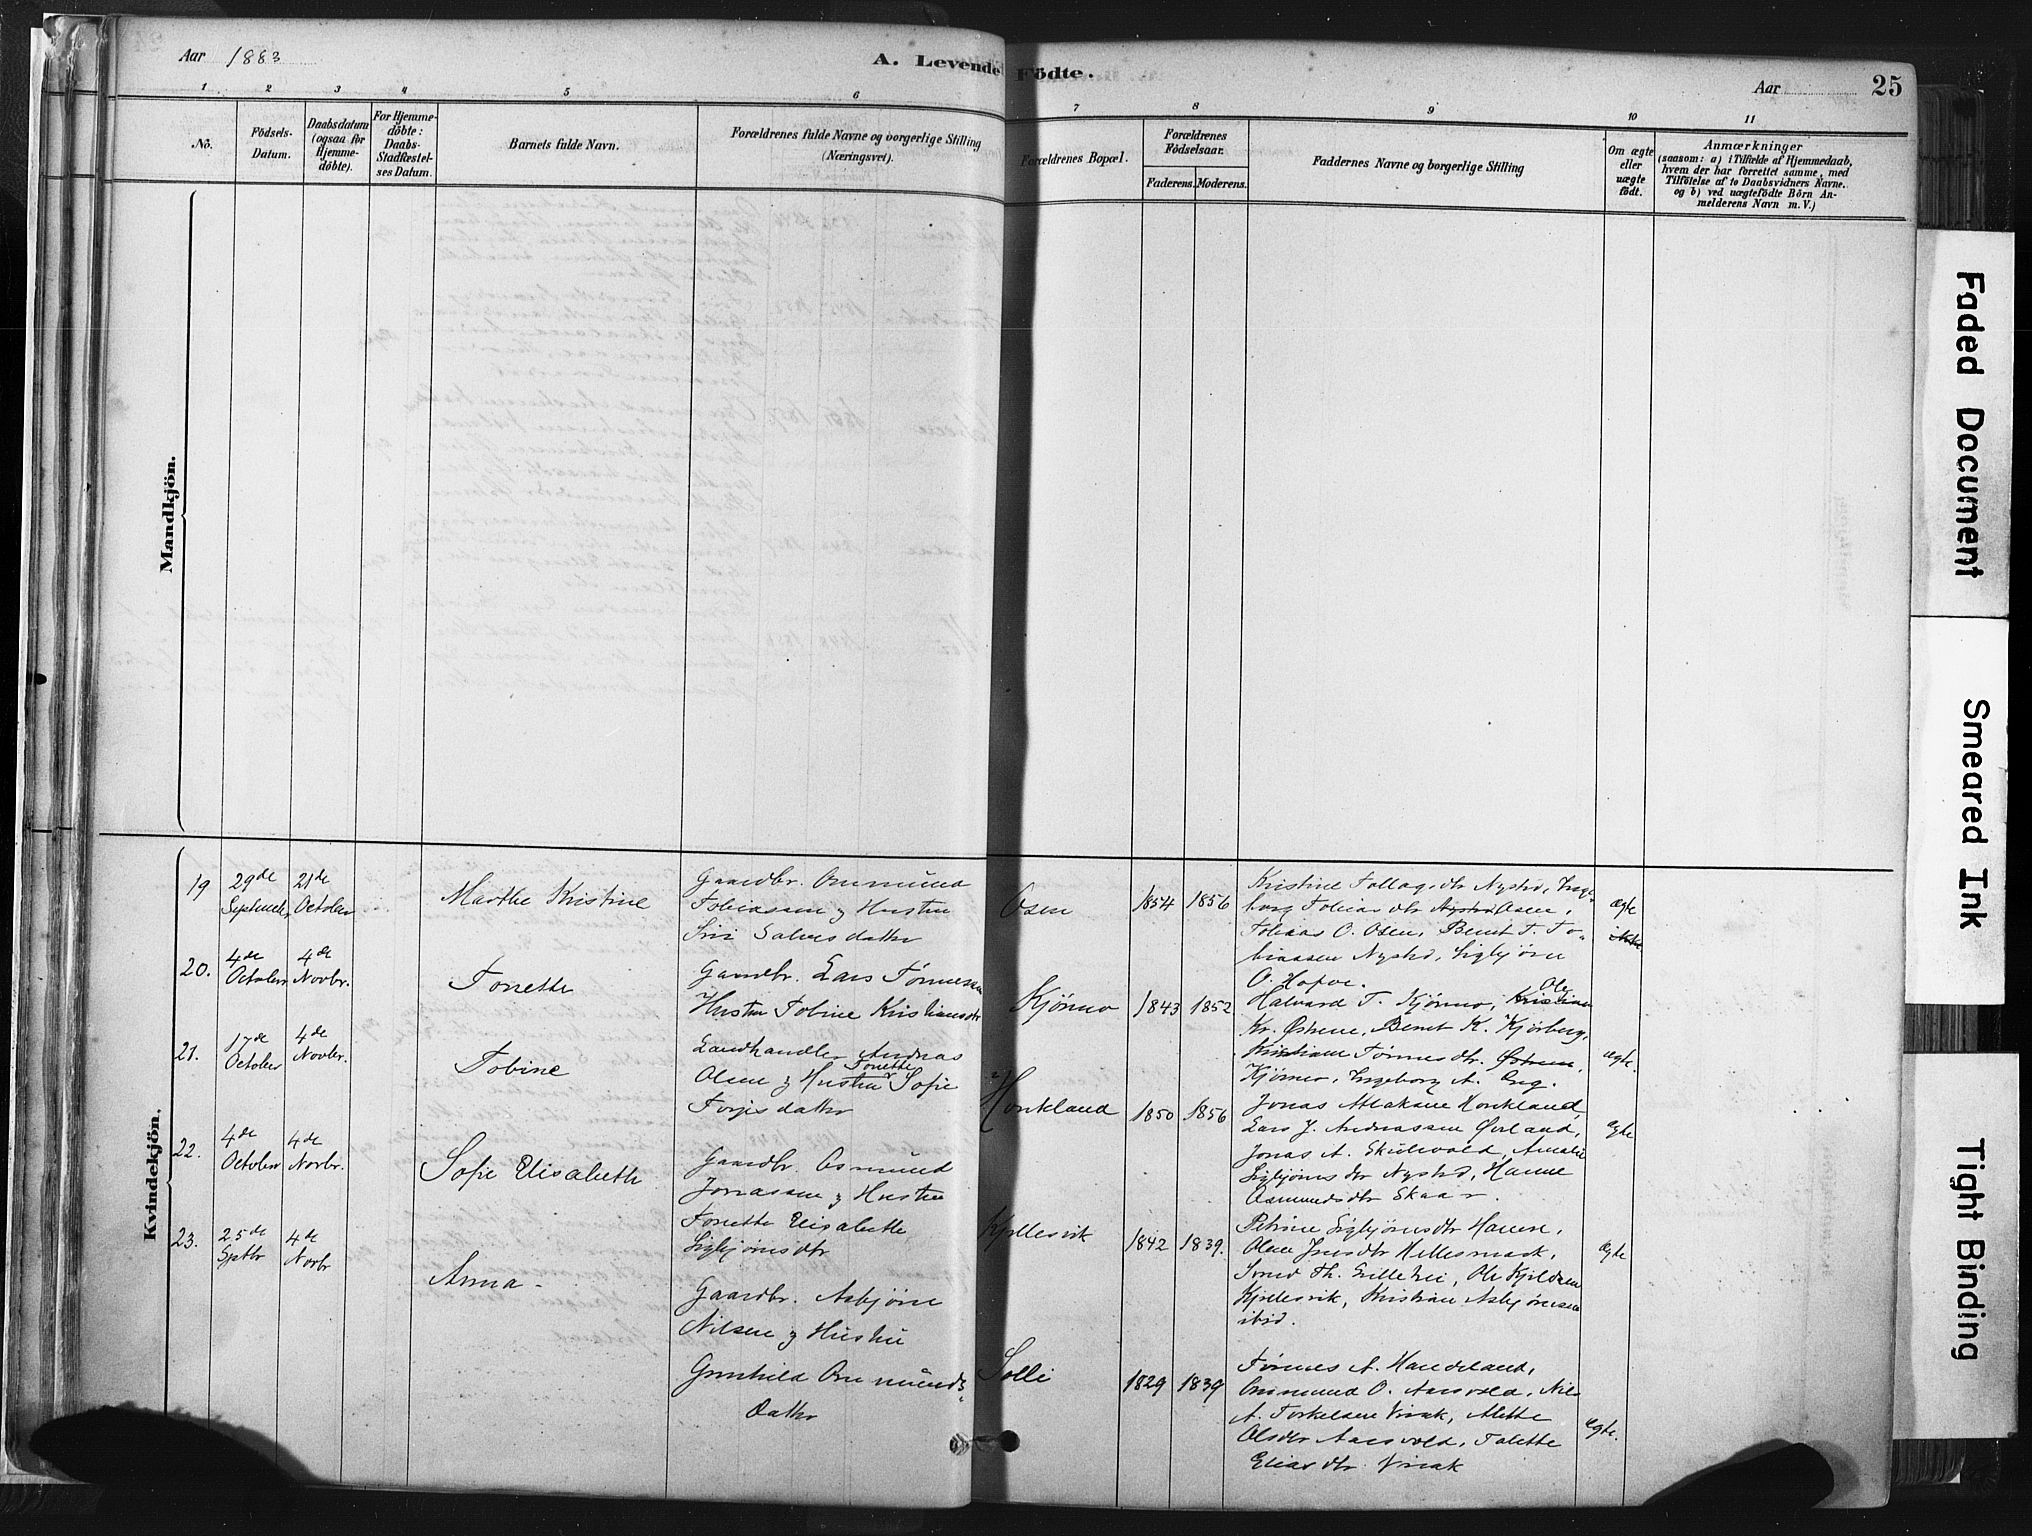 Aar 1883
A. Levende Födte.
Aar
25
1 2 3 4 5 6 7 8 9 10 11
No.
Födsels-
Datum.
Daabsdatum
(ogsaa for
Hjemme-
döbte).
For Hjemme-
döbte:
Daabs-
Stadfæstel-
ses Datum.
Barnets fulde Navn.
Forældrenes fulde Navne og borgerlige Stilling
(Næringsvei).
Forældrenes Bopæl.
Forældrenes
Födselsaar.
Faderens. Moderens.
Faddernes Navne og borgerlige Stilling
Om ægte
eller
uægte
födt.
Anmærkninger
(saasom: a) i Tilfælde af Hjemmedaab,
hvem der har forrettet samme, med
Tilföielse af to Daabsvidners Navne.
og b) ved uægtefödte Börn An-
melderens Navn m. V.)
Mandkjön.
Kvindekjön.
19
29de
Septembr
21de
October
Marthe Kristine
Gaardbr. Ommund
Tobiassen & Hustru
Siri Salvesdatter
Osen
1854 1856
Kristine Tollagsdtr Nysted, Inge-
borg Tobiasdtr Osen,
Tobias O. Osen, Bernt T. To-
biassen Nysted, Sigbjörn
O. Hofve.
ægte
20.
4de
October
4de
Novbr.
Tonette
Gaardbr. Lars Tønnessen
Hustru Tobine Kristiansdtr
Kjörmo
1843 1852
Halvard T. Kjörmo, Ole
Kr. Østrem, Bernt K. Kjörberg,
Tønnesdtr.
Kjörmo, Ingeborg A. Eng.
ægte
21.
17de
October
4de
Novbr.
Tobine
Landhandler Andreas
Olsen & Hustru Tonette Sofie
Torjesdatter
Honkland
1850 1856
Jonas Honkland,
Lars J. Andreassen Øvland,
Jonas A. Amalie
Sigbjörnsdtr Nysted, Hanne
Osmundsdtr Skaar.
ægte
22.
4de
October
4de
Novbr.
Sofie Elisabeth
Gaardbr. Osmund
Jonassen & Hustru
Tonette Elisabeth
Sigbjörnsdtr
Kjellesvik
1842 1839.
Petrine Sigbjörnsdtr
Jensdtr
Ole Kjeldsen
Kjellesvik, Kristian Asbjörnsen
ibid.
ægte
23.
25de
Septbr
4de
Novbr
Anna
Gaardbr. Asbjörn
Nilsen & Hustru
Gunhild Ommunds-
Datter
Solli
1829 1839
Tønnes A. Handeland,
Ommund O. Aarsvold, Nils
A. Torkelsen Virak, Alette
Olsdtr Aarsvold, Talette
Eliasdtr. Virak
ægte.
Faded Document
Smeared Ink
Tight Binding